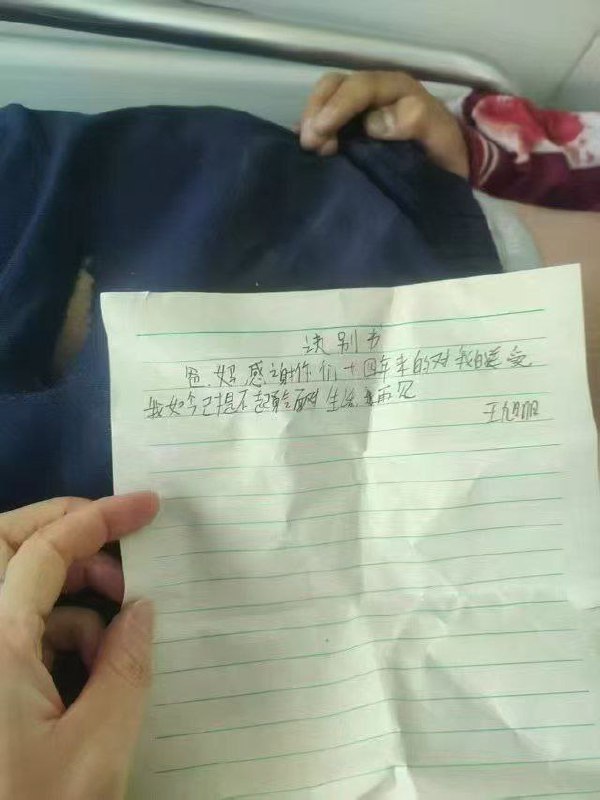 诀别书
爸、妈感谢你们十四年来的对我的
我如今已提不起 面对生活 再见